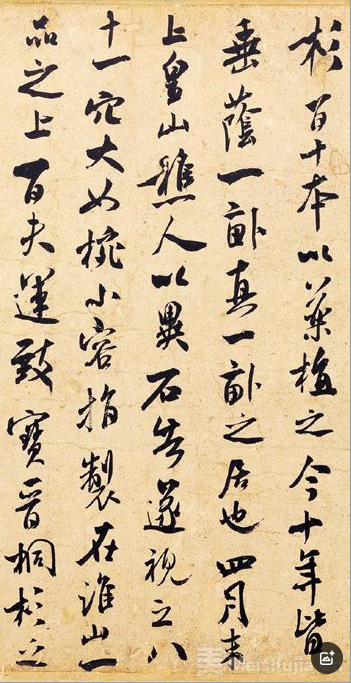 杉百十本以藥植之今十年皆
垂蔭一畝真一畝之居也四月末
上皇山樵人以異石告遂視之八
十一穴大如椀小容指製在淮山一
品之上百夫運致寶晉桐杉之